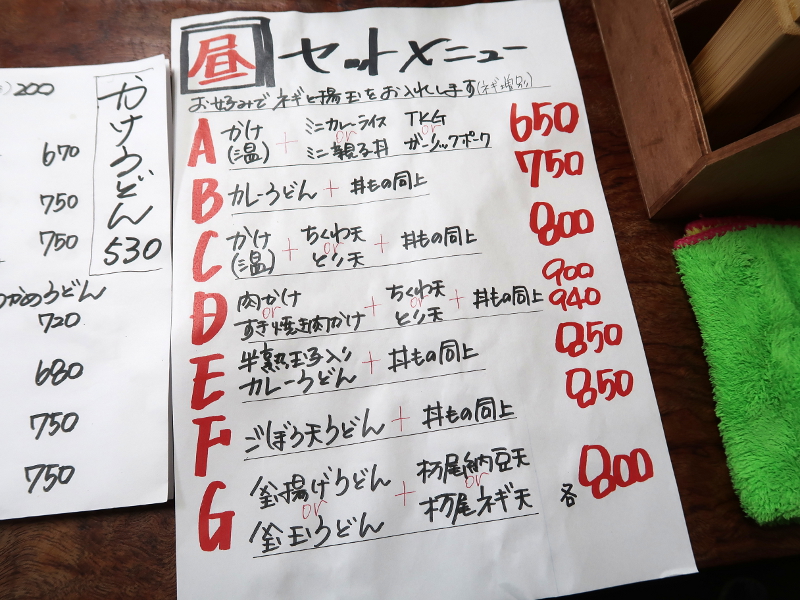 200
かけうどん
530
670
750
750
かめうどん
720
680
750
750
昼 セットメニュー
お好みでネギと揚玉をお入れします(ネギ増別)
A かけ(温) + ミニカレーライス or ミニ親子丼 TKG or ガーリックポーク 650
B カレーうどん + 丼もの同上 750
C かけ(温) + ちくわ天 or とり天 + 丼もの同上 800
D 肉かけ or すき焼き肉かけ + ちくわ天 or とり天 + 丼もの同上 900 940
E 半熟玉子入りカレーうどん + 丼もの同上 850
F ごぼう天うどん + 丼もの同上 850
G 釜揚げうどん or 釜玉うどん + 栃尾納豆天 or 栃尾ネギ天 各800